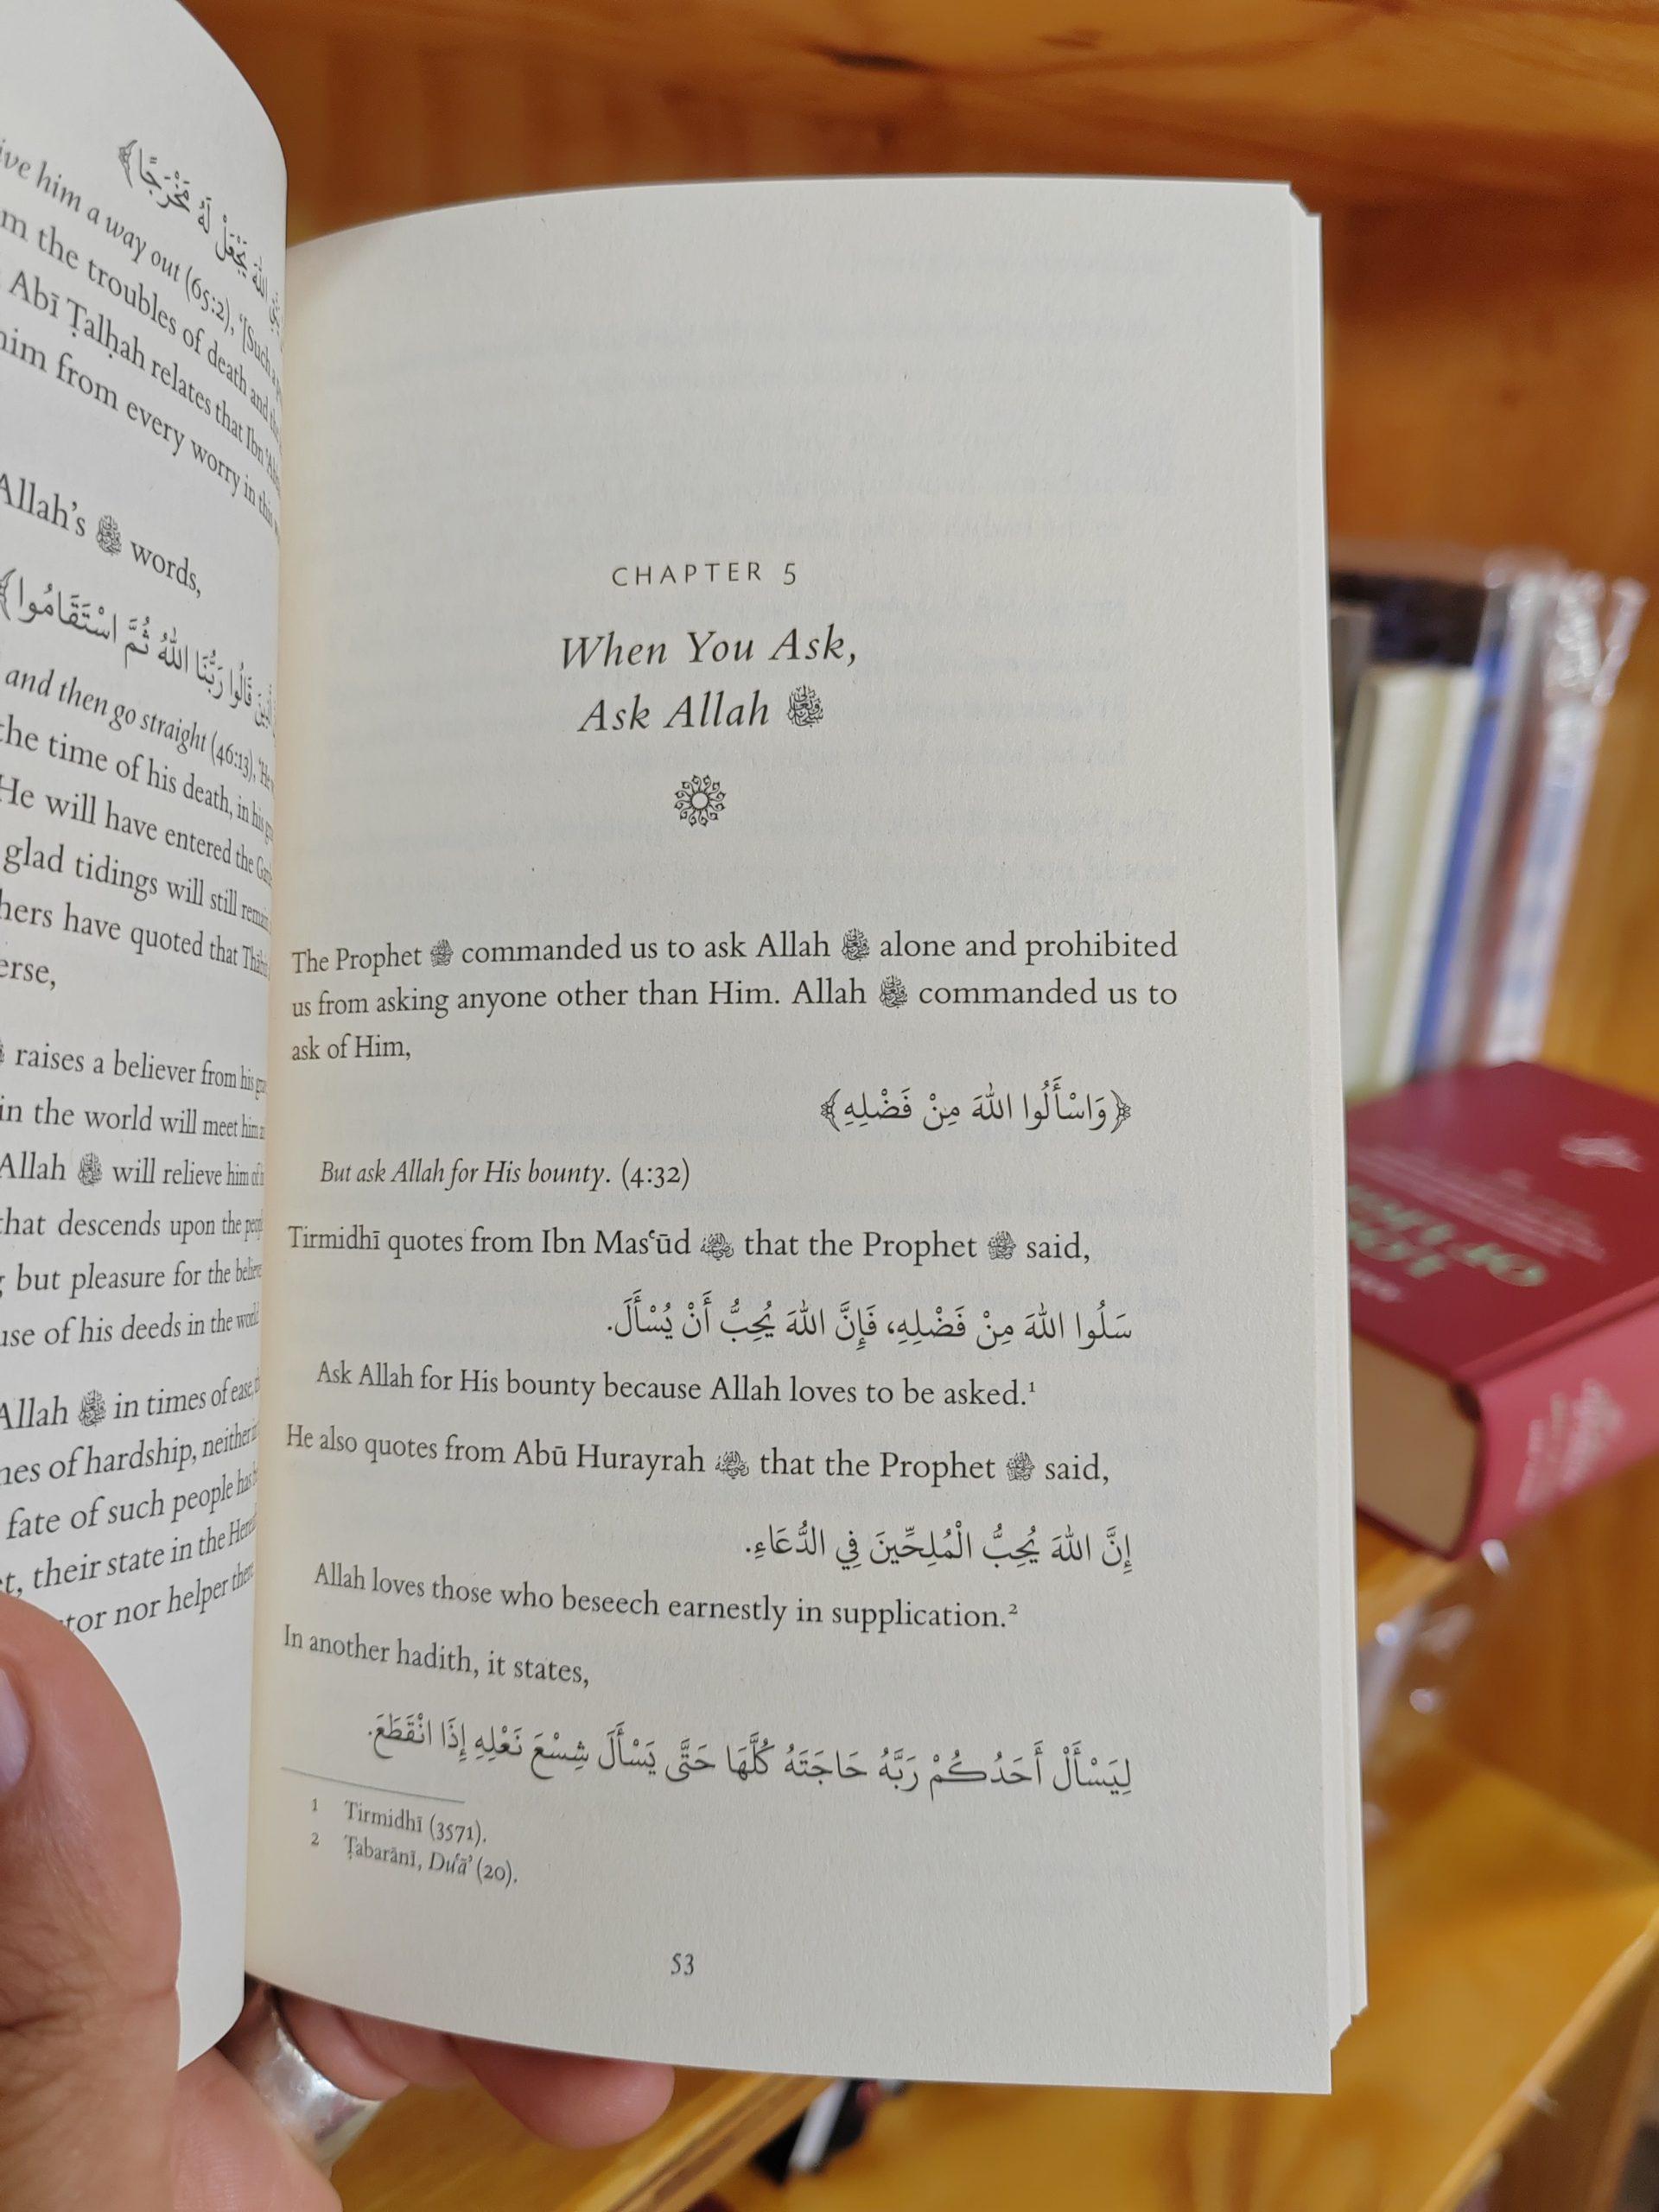 ﴿ اللهَ يَجْعَلْ لَهُ مَخْرَجًا﴾
him a way out (65:2), '[Such
the troubles of death and
Abī Ṭalḥah relates that Ibn
him from every worry in this
Allah's ﷻ words,
قَالُوا رَبُّنَا اللهُ ثُمَّ اسْتَقَامُوا﴾
and then go straight (46:13),
the time of his death, in his
He will have entered the
glad tidings will still
have quoted that
raises a believer from his
in the world will meet him
Allah ﷻ will relieve him
that descends upon the
but pleasure for the
of his deeds in the
Allah ﷻ in times of ease,
of hardship, neither
fate of such people has
their state in the
nor helper
CHAPTER 5
When You Ask,
Ask Allah ﷻ
The Prophet ﷺ commanded us to ask Allah ﷻ alone and prohibited
us from asking anyone other than Him. Allah ﷻ commanded us to
ask of Him,
﴿وَاسْأَلُوا اللهَ مِنْ فَضْلِهِ﴾
But ask Allah for His bounty. (4:32)
Tirmidhī quotes from Ibn Masʿūd that the Prophet ﷺ said,
سَلُوا اللهَ مِنْ فَضْلِهِ، فَإِنَّ اللهَ يُحِبُّ أَنْ يُسْأَلَ.
Ask Allah for His bounty because Allah loves to be asked.¹
He also quotes from Abū Hurayrah that the Prophet ﷺ said,
إِنَّ اللهَ يُحِبُّ الْمُلِحِّينَ فِي الدُّعَاءِ.
Allah loves those who beseech earnestly in supplication.²
In another hadith, it states,
لِيَسْأَلْ أَحَدُكُمْ رَبَّهُ حَاجَتَهُ كُلَّهَا حَتَّى يَسْأَلَ شِسْعَ نَعْلِهِ إِذَا انْقَطَعَ.
1 Tirmidhī (3571).
2 Ṭabarānī, Duʿāʾ (20).
53